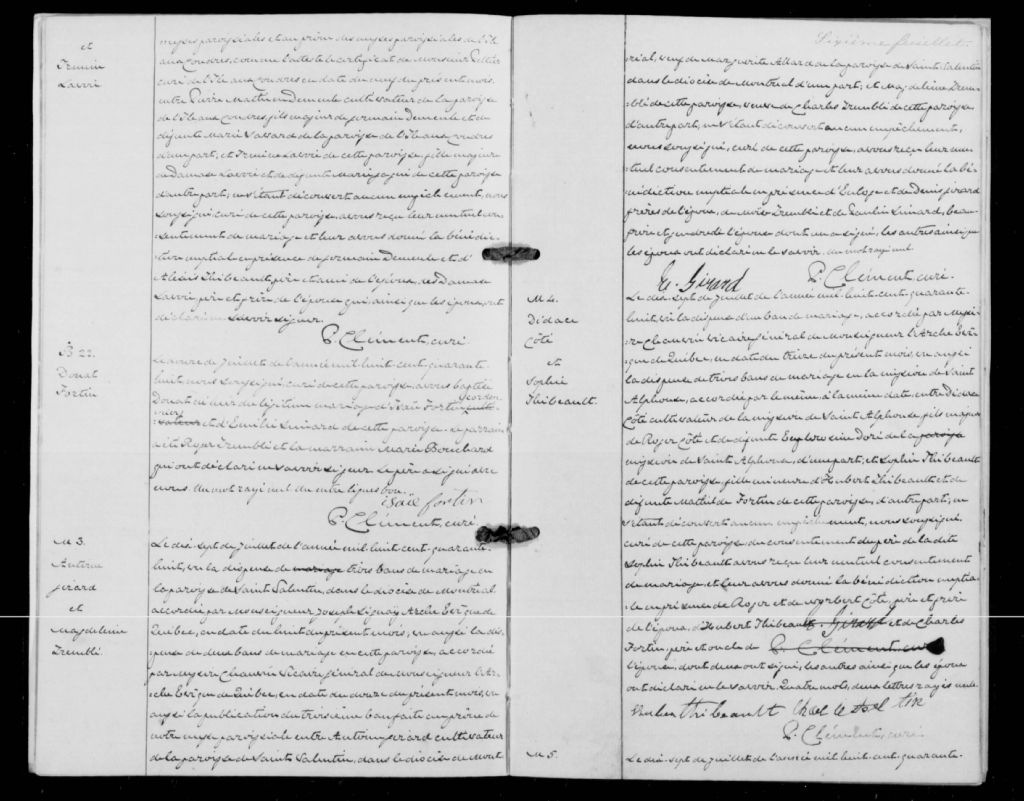 et
Irénée
Lavoie
messes paroissiales et au prône des messes paroissiales de l'Ile
aux Coudres, comme l'atteste le certificat de Monsieur Pelletier
curé de l'Ile aux Coudres en date du neuf du présent mois,
entre Pierre Mathieu Demeule cultivateur de la paroisse
de l'Ile aux Coudres fils majeur de Germain Demeule et de
défunte Marie Vassard de la paroisse de l'Ile aux Coudres
d'une part; et Irénée Lavoie de cette paroisse, fille majeure
de Damase Lavoie et de défunte de cette paroisse
d'autre part; ne s'étant découvert aucun empêchement, nous
soussigné, curé de cette paroisse, avons reçu leur mutuel con-
sentement de mariage et leur avons donné la bénédic-
tion nuptiale en présence de Germain Demeule et d'
Alexis Thibeault, père et ami de l'époux, de Damase
Lavoie, père et frère de l'épouse qui, ainsi que les époux, ont
déclaré ne savoir signer.
P. Clément, curé
B 23.
Donat
Fortin
Le onze de juillet de l'année mil huit cent quarante-
huit, nous soussigné, curé de cette paroisse, avons baptisé
Donat né hier du légitime mariage d'Isaïe Fortin
et d'Emilie Simard de cette paroisse. Le parrain
a été Roger Tremblé et la marraine Marie Bouchard
qui ont déclaré ne savoir signer, le père a signé avec
nous. Un mot rayé nul. Un entre lignes bon.
Isaïe Fortin
P. Clément, curé
M 3.
Antoine
Girard
et
Magdeleine
Tremblé.
Le dix-sept de juillet de l'année mil huit cent quarante-
huit, vu la dispense de mariage trois bans de mariage en
la paroisse de Saint Valentin, dans le diocèse de Montréal
accordée par Monseigneur Joseph Signaÿ Archevêque de
Québec, en date du huit du présent mois; vu aussi la dis-
pense de deux bans de mariage en cette paroisse, accordée
par Messire Chauvin Vicaire général de Monseigneur l'Ar-
chevêque de Québec, en date du douze du présent mois, vu
aussi la publication du troisième ban faite au prône de
notre messe paroissiale entre Antoine Girard cultivateur
de la paroisse de Saint Valentin, dans le diocèse de Mont-
Sixième feuillet.
réal, veuf de Marguerite Allard de la paroisse de Saint Valentin
dans le diocèse de Montréal d'une part; et Magdeleine Trem-
blé de cette paroisse, veuve de Charles Tremblé de cette paroisse,
d'autre part; ne s'étant découvert aucun empêchement,
nous soussigné, curé de cette paroisse, avons reçu leur mu-
tuel consentement de mariage et leur avons donné la bé-
nédiction nuptiale en présence d'Euloge et de Denis Girard
frères de l'époux, de Moïse Tremblé et de Paulin Simard, beau-
frère et gendre de l'épouse dont un a signé, les autres ainsi que
les époux ont déclaré ne le savoir. Un mot rayé nul.
Eu. Girard P. Clément, curé.
M 4.
Didace
Côté
et
Sophie
Thibeault.
Le dix-sept de juillet de l'année mil huit cent quarante-
huit, vu la dispense d'un ban de mariage, accordée par Messi-
re Chauvin Vicaire général de Monseigneur l'Archevê-
que de Québec, en date du treize du présent mois, vu aussi
la dispense de trois bans de mariage en la mission de Saint
Alphonse, accordée par le même à la même date, entre Didace
Côté cultivateur de la mission de Saint Alphonse, fils majeur
de Roger Côté et de défunte Euphrosine Doré de la paroisse
mission de Saint Alphonse, d'une part; et Sophie Thibeault
de cette paroisse, fille mineure d'Hubert Thibeault et de
défunte Mathilde Fortin de cette paroisse, d'autre part; ne
s'étant découvert aucun empêchement, nous soussigné
curé de cette paroisse, du consentement du père de la dite
Sophie Thibeault avons reçu leur mutuel consentement
de mariage et leur avons donné la bénédiction nuptia-
le en présence de Roger et de Norbert Côté, père et frère
de l'époux, d'Hubert Thibeault Girard et de Charles
Fortin, père et oncle de P. Clément, curé
l'épouse, dont deux ont signé, les autres ainsi que les époux
ont déclaré ne le savoir. Quatre mots, deux lettres rayés nuls.
Hubert Thibeault
P. Clément, curé.
M 5.
Le dix-sept de juillet de l'année mil huit cent quarante-